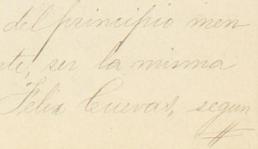 del principio men
te, ser la misma
Felix Cuevas, segun